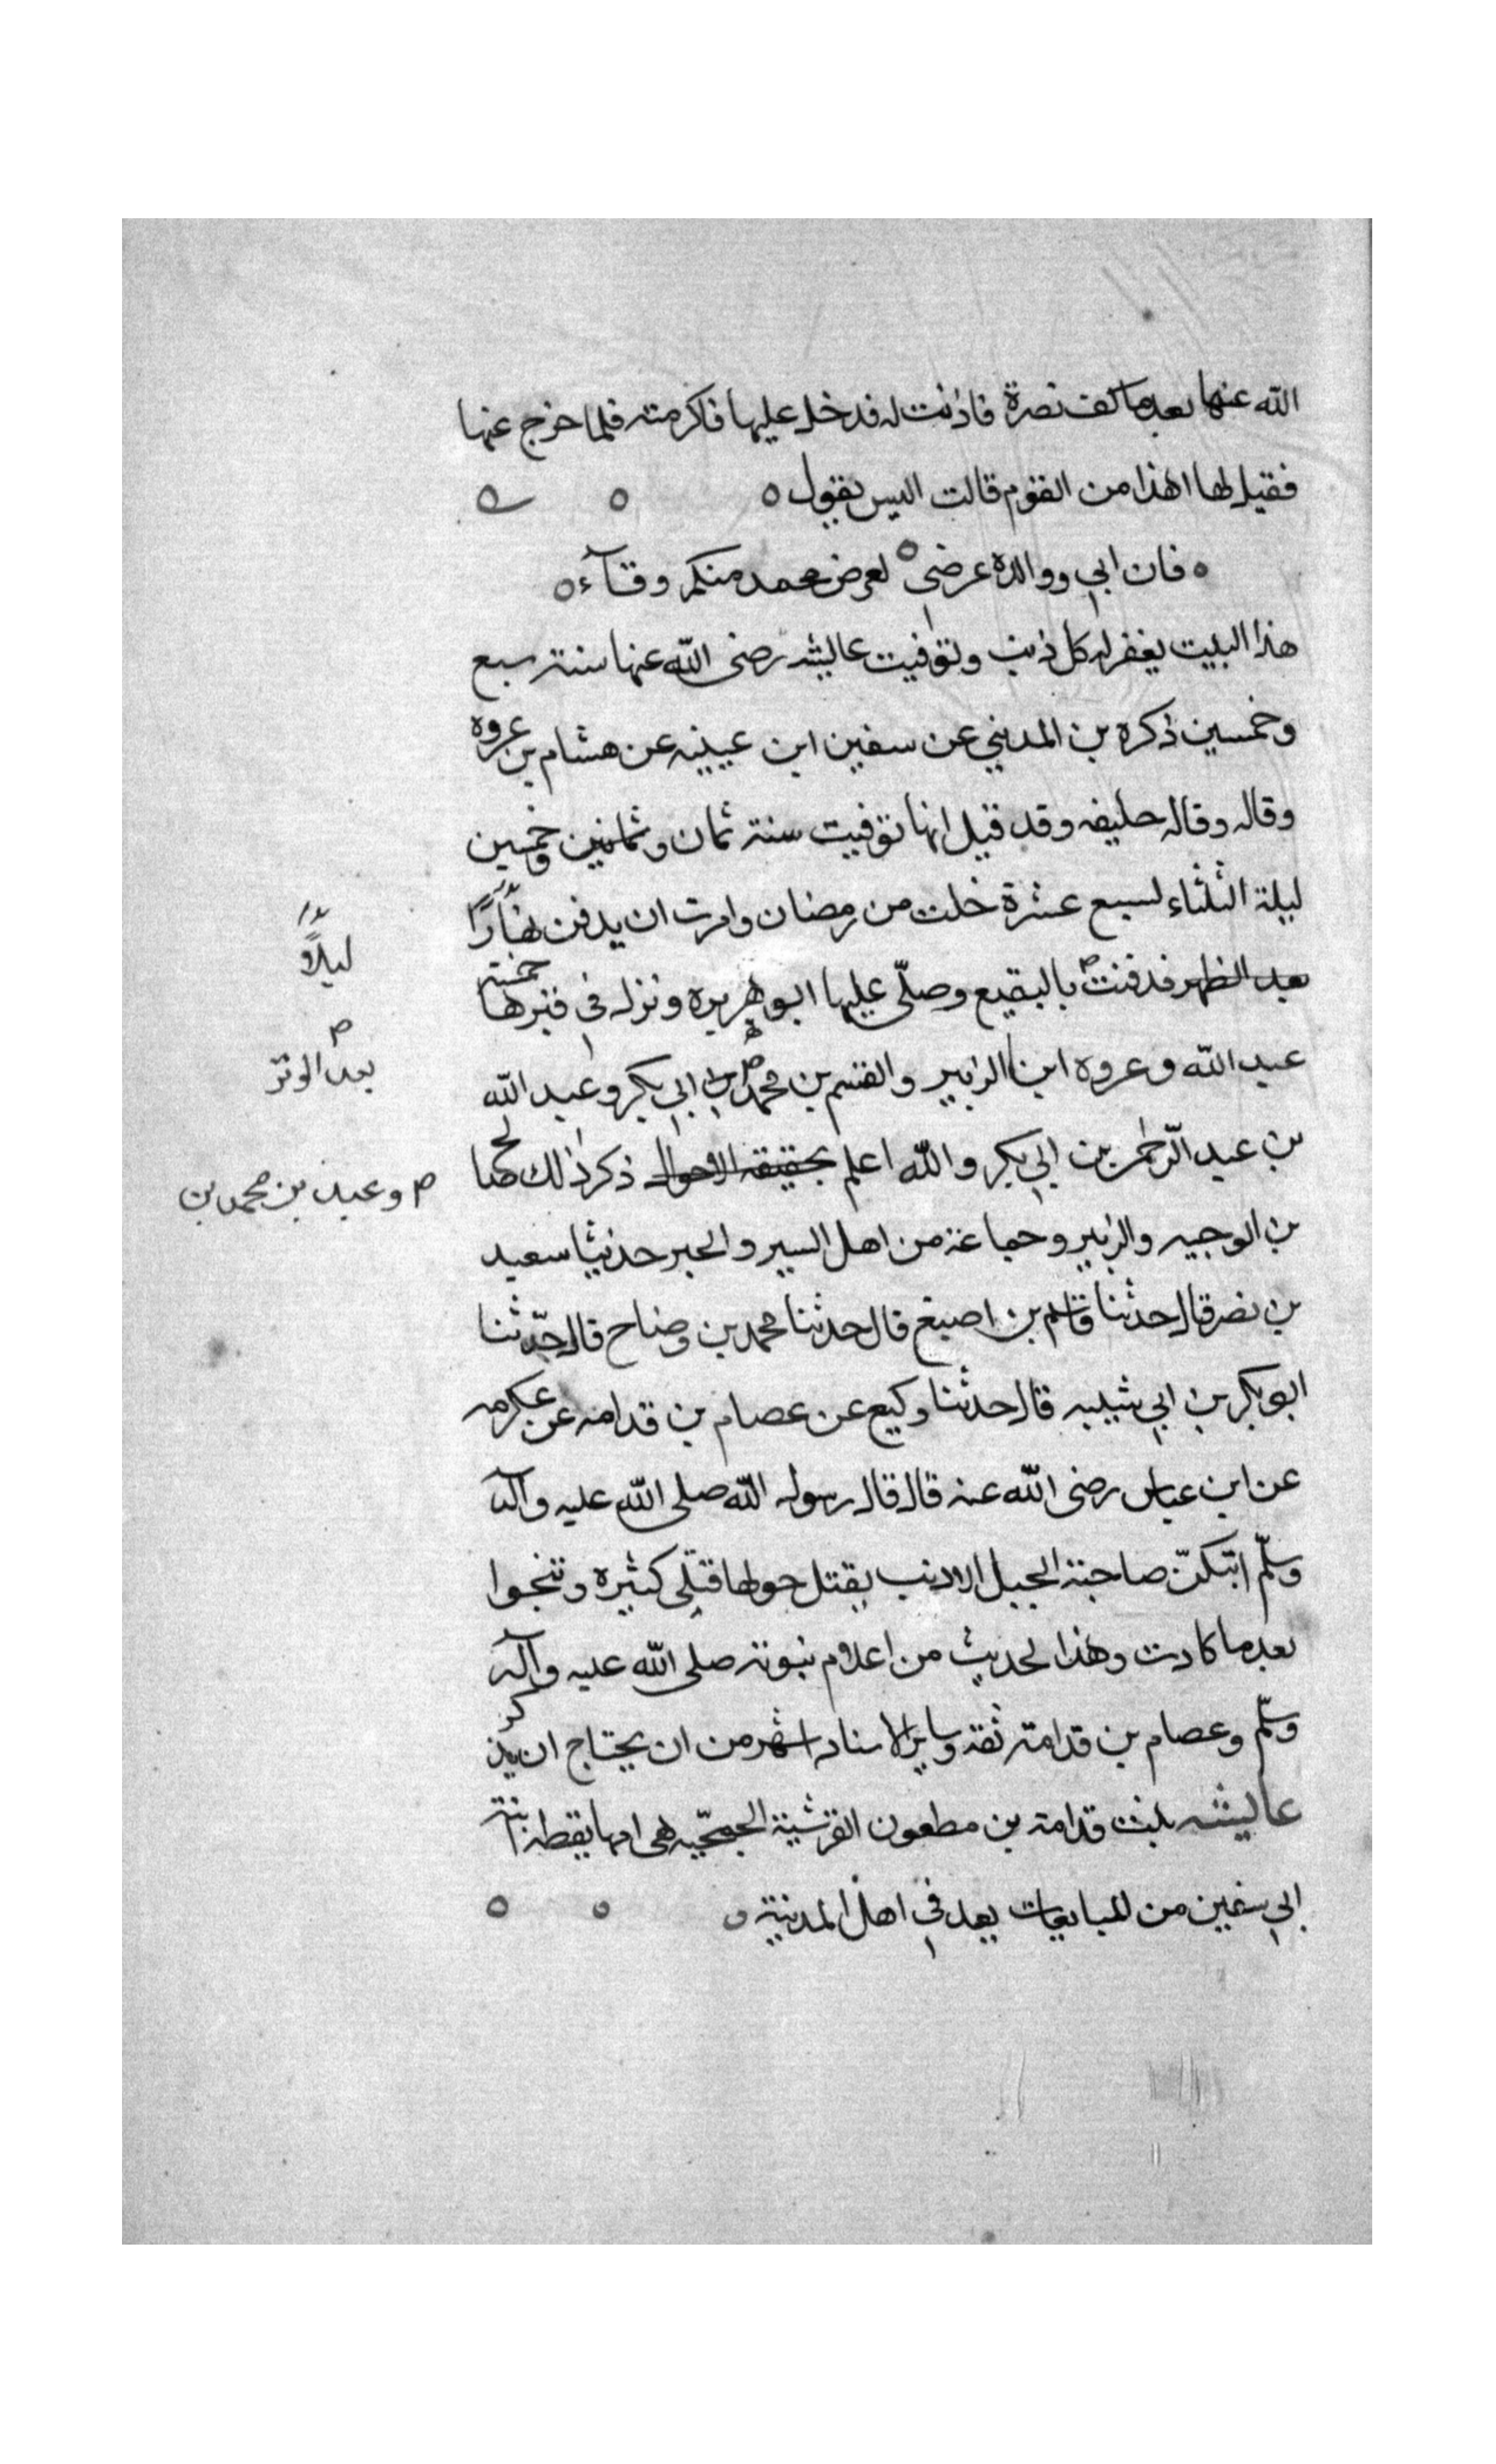 الله عنها بعدما كف نصرة فاذنت له فدخل عليها فاكرمته فلما خرج عنها
فقيل لها اهذا من القوم قالت اليس يقول ه ه
ه فان ابي ووالده عرضي ه لعرض محمد منكم وقآء ه
هذا البيت يغفر له كل ذنب وتوفيت عايشه رضى الله عنها سنة سبع
وخمسين ذكره بن المديني عن سفين ابن عيينه عن هشام بن عروه
وقاله وقاله خليفه وقد قيل انها توفيت سنة ثمان وثمانين وخمسين
ليلة الثلثاء لسبع عشرة خلت من رمضان وامرت ان يدفن نهارًا
ليلاً
بعد الظهر فدفنت بالبقيع وصلّى عليها ابو هريره ونزله في قبرها خمسة
بعد الوتر
عبد الله وعروه ابنا الزبير والقسم بن محمد بن ابي بكر وعبد الله
بن عبد الرّحمن بن ابي بكر والله اعلم بحقيقه الاحوال ذكر ذلك
م وعبد بن محمد بن
بن الوجيه والزبير وجماعة من اهل السير والخبر حدثنا سعيد
بن نصر قال حدثنا قاسم بن اصبغ قال حدثنا محمد بن وضاح قال حدّثنا
ابو بكر بن ابي شيبه قال حدثنا وكيع عن عصام بن قدامه عن عكرمه
عن ابن عباس رضى الله عنه قال قال رسول الله صلى الله عليه وآله
وسلّم ايتكنّ صاحبة الجمل الادبب يقتل حولها قتلى كثيره وتنجوا
بعدما كادت وهذا الحديث من اعلام نبوته صلى الله عليه وآله
وسلّم وعصام بن قدامة ثقة وساير الاسناد اشهر من ان يحتاج ان يذكر
عايشه بنت قدامة بن مطعون القرشية الجمحّيه هى امها يقطه ابنة
ابي سفين من المبايعات يعد في اهل المدينة ه ه ه